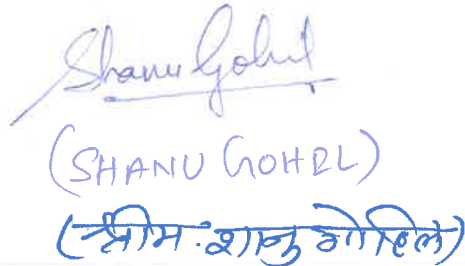 Shanu Gohil
(SHANU GOHEL)
(श्रीम. शानु गोहिल)